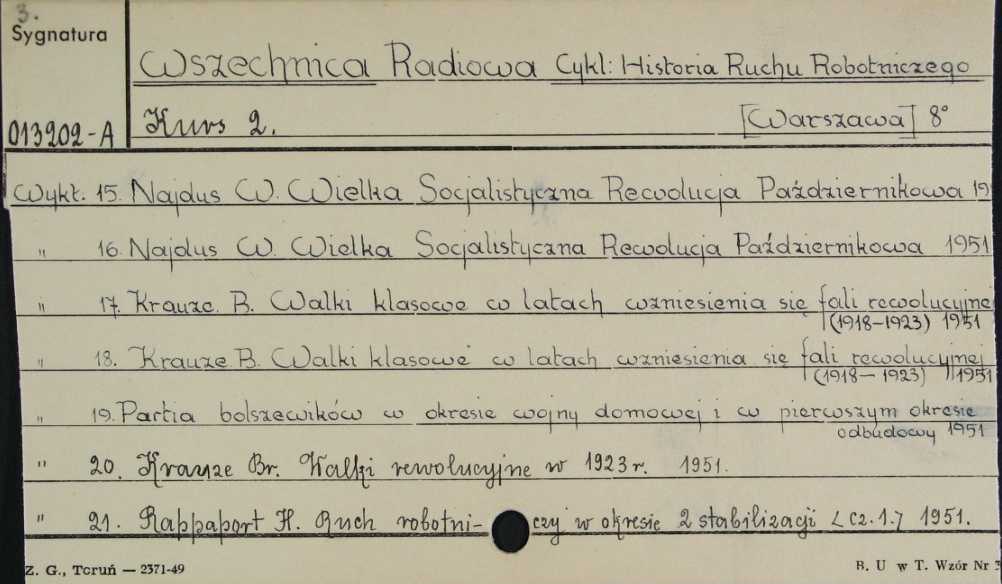 3.
Sygnatura
Wszechnica Radiowa Cykl: Historia Ruchu Robotniczego
013202-A Kurs 2. [Warszawa] 8°
Wykł. 15. Najdus W. Wielka Socjalistyczna Rewolucja Październikowa 19
" 16. Najdus W. Wielka Socjalistyczna Rewolucja Październikowa 1951
" 17. Krauze. B. Walki klasowe w latach wzniesienia się fali rewolucyjnej
(1918-1923) 1951
" 18. Krauze B. Walki klasowe w latach wzniesienia się fali rewolucyjnej
(1918-1923) 1951
" 19. Partia bolszewików w okresie wojny domowej i w pierwszym okresie
odbudowy 1951
" 20. Krauze Br. Walki rewolucyjne w 1923 r. 1951.
" 21. Rappaport H. Ruch robotni- czy w okresie 2 stabilizacji <cz. 1.> 1951.
Z. G., Toruń — 2371-49 B. U w T. Wzór Nr